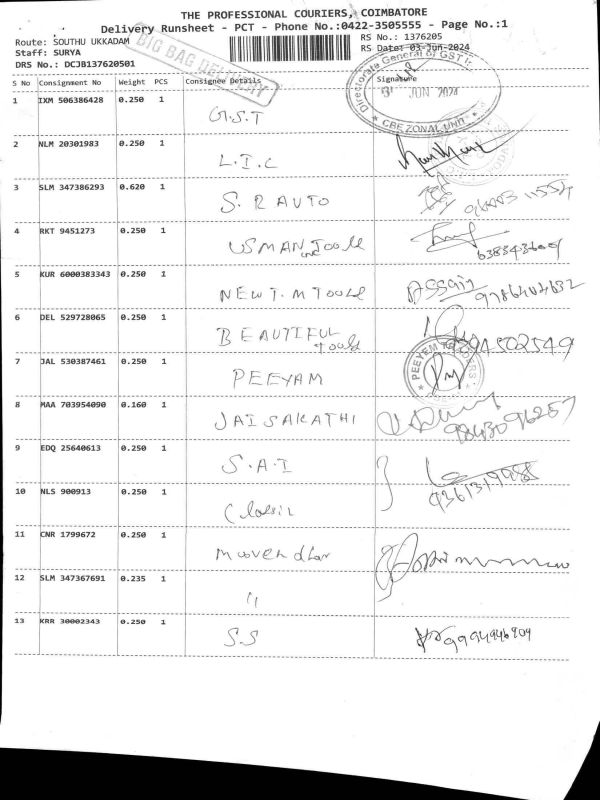 THE PROFESSIONAL COURIERS, COIMBATORE
Delivery Runsheet - PCT - Phone No.:0422-3505555 - Page No.:1
Route: SOUTHU UKKADAM
RS No.: 1376205
Staff: SURYA
RS Date: 03-Jun-2024
DRS No.: DCJB137620501
BIG BAG DELIVERY
Directorate General of GST I
JUN 2024
CBE ZONAL UNIT
S No Consignment No Weight PCS Consignee Details Signature
1 IXM 506386428 0.250 1 G.S.T
2 NLM 20301983 0.250 1 L.I.C
3 SLM 347386293 0.620 1 S.R AUTO
4 RKT 9451273 0.250 1 USMAN Tools
5 KUR 6000383343 0.250 1 NEW T.M TOOLS
6 DEL 529728065 0.250 1 BEAUTIFUL
Tools
7 JAL 530387461 0.250 1 PEEYAM PEEYEM
8 MAA 703954090 0.160 1 JAI SARATHI
9843096257
9 EDQ 25640613 0.250 1 S.A.I
10 NLS 900913 0.250 1 Classic
11 CNR 1799672 0.250 1 Moovendhar
12 SLM 347367691 0.235 1 "
13 KRR 30002343 0.250 1 S.S 9994946909